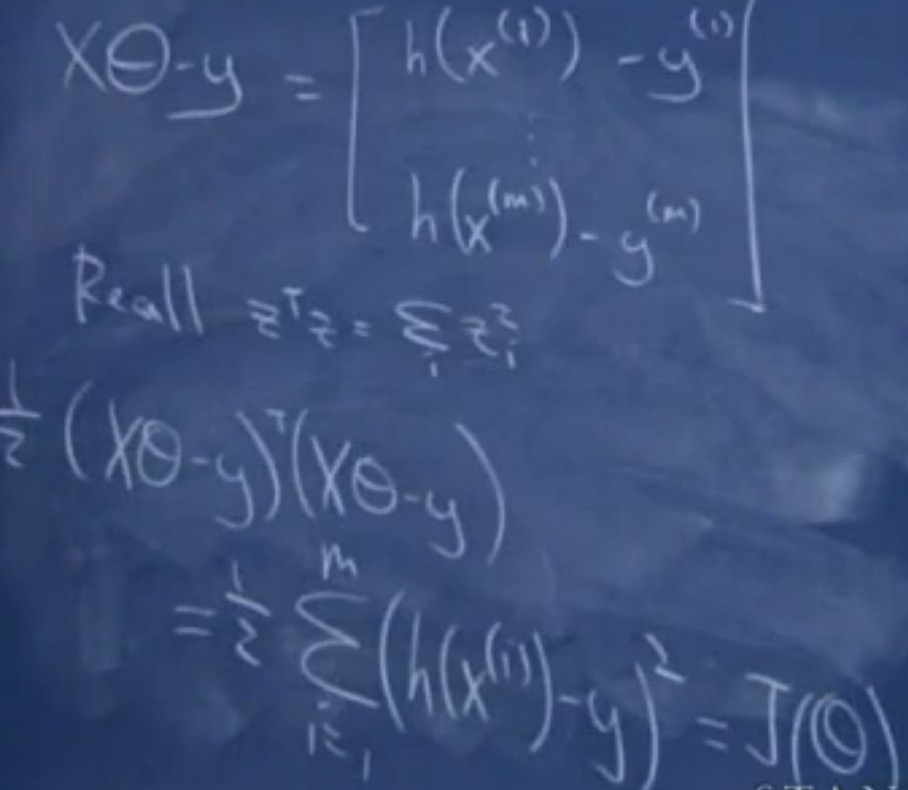 Xθ-y = [ h(x⁽¹⁾) - y⁽¹⁾
⋮
h(x⁽ᵐ⁾) - y⁽ᵐ⁾ ]
Recall zᵀz = Σᵢ zᵢ²
1/2 (Xθ-y)ᵀ(Xθ-y)
= 1/2 Σᵢ₌₁ᵐ (h(x⁽ⁱ⁾)-y)² = J(θ)